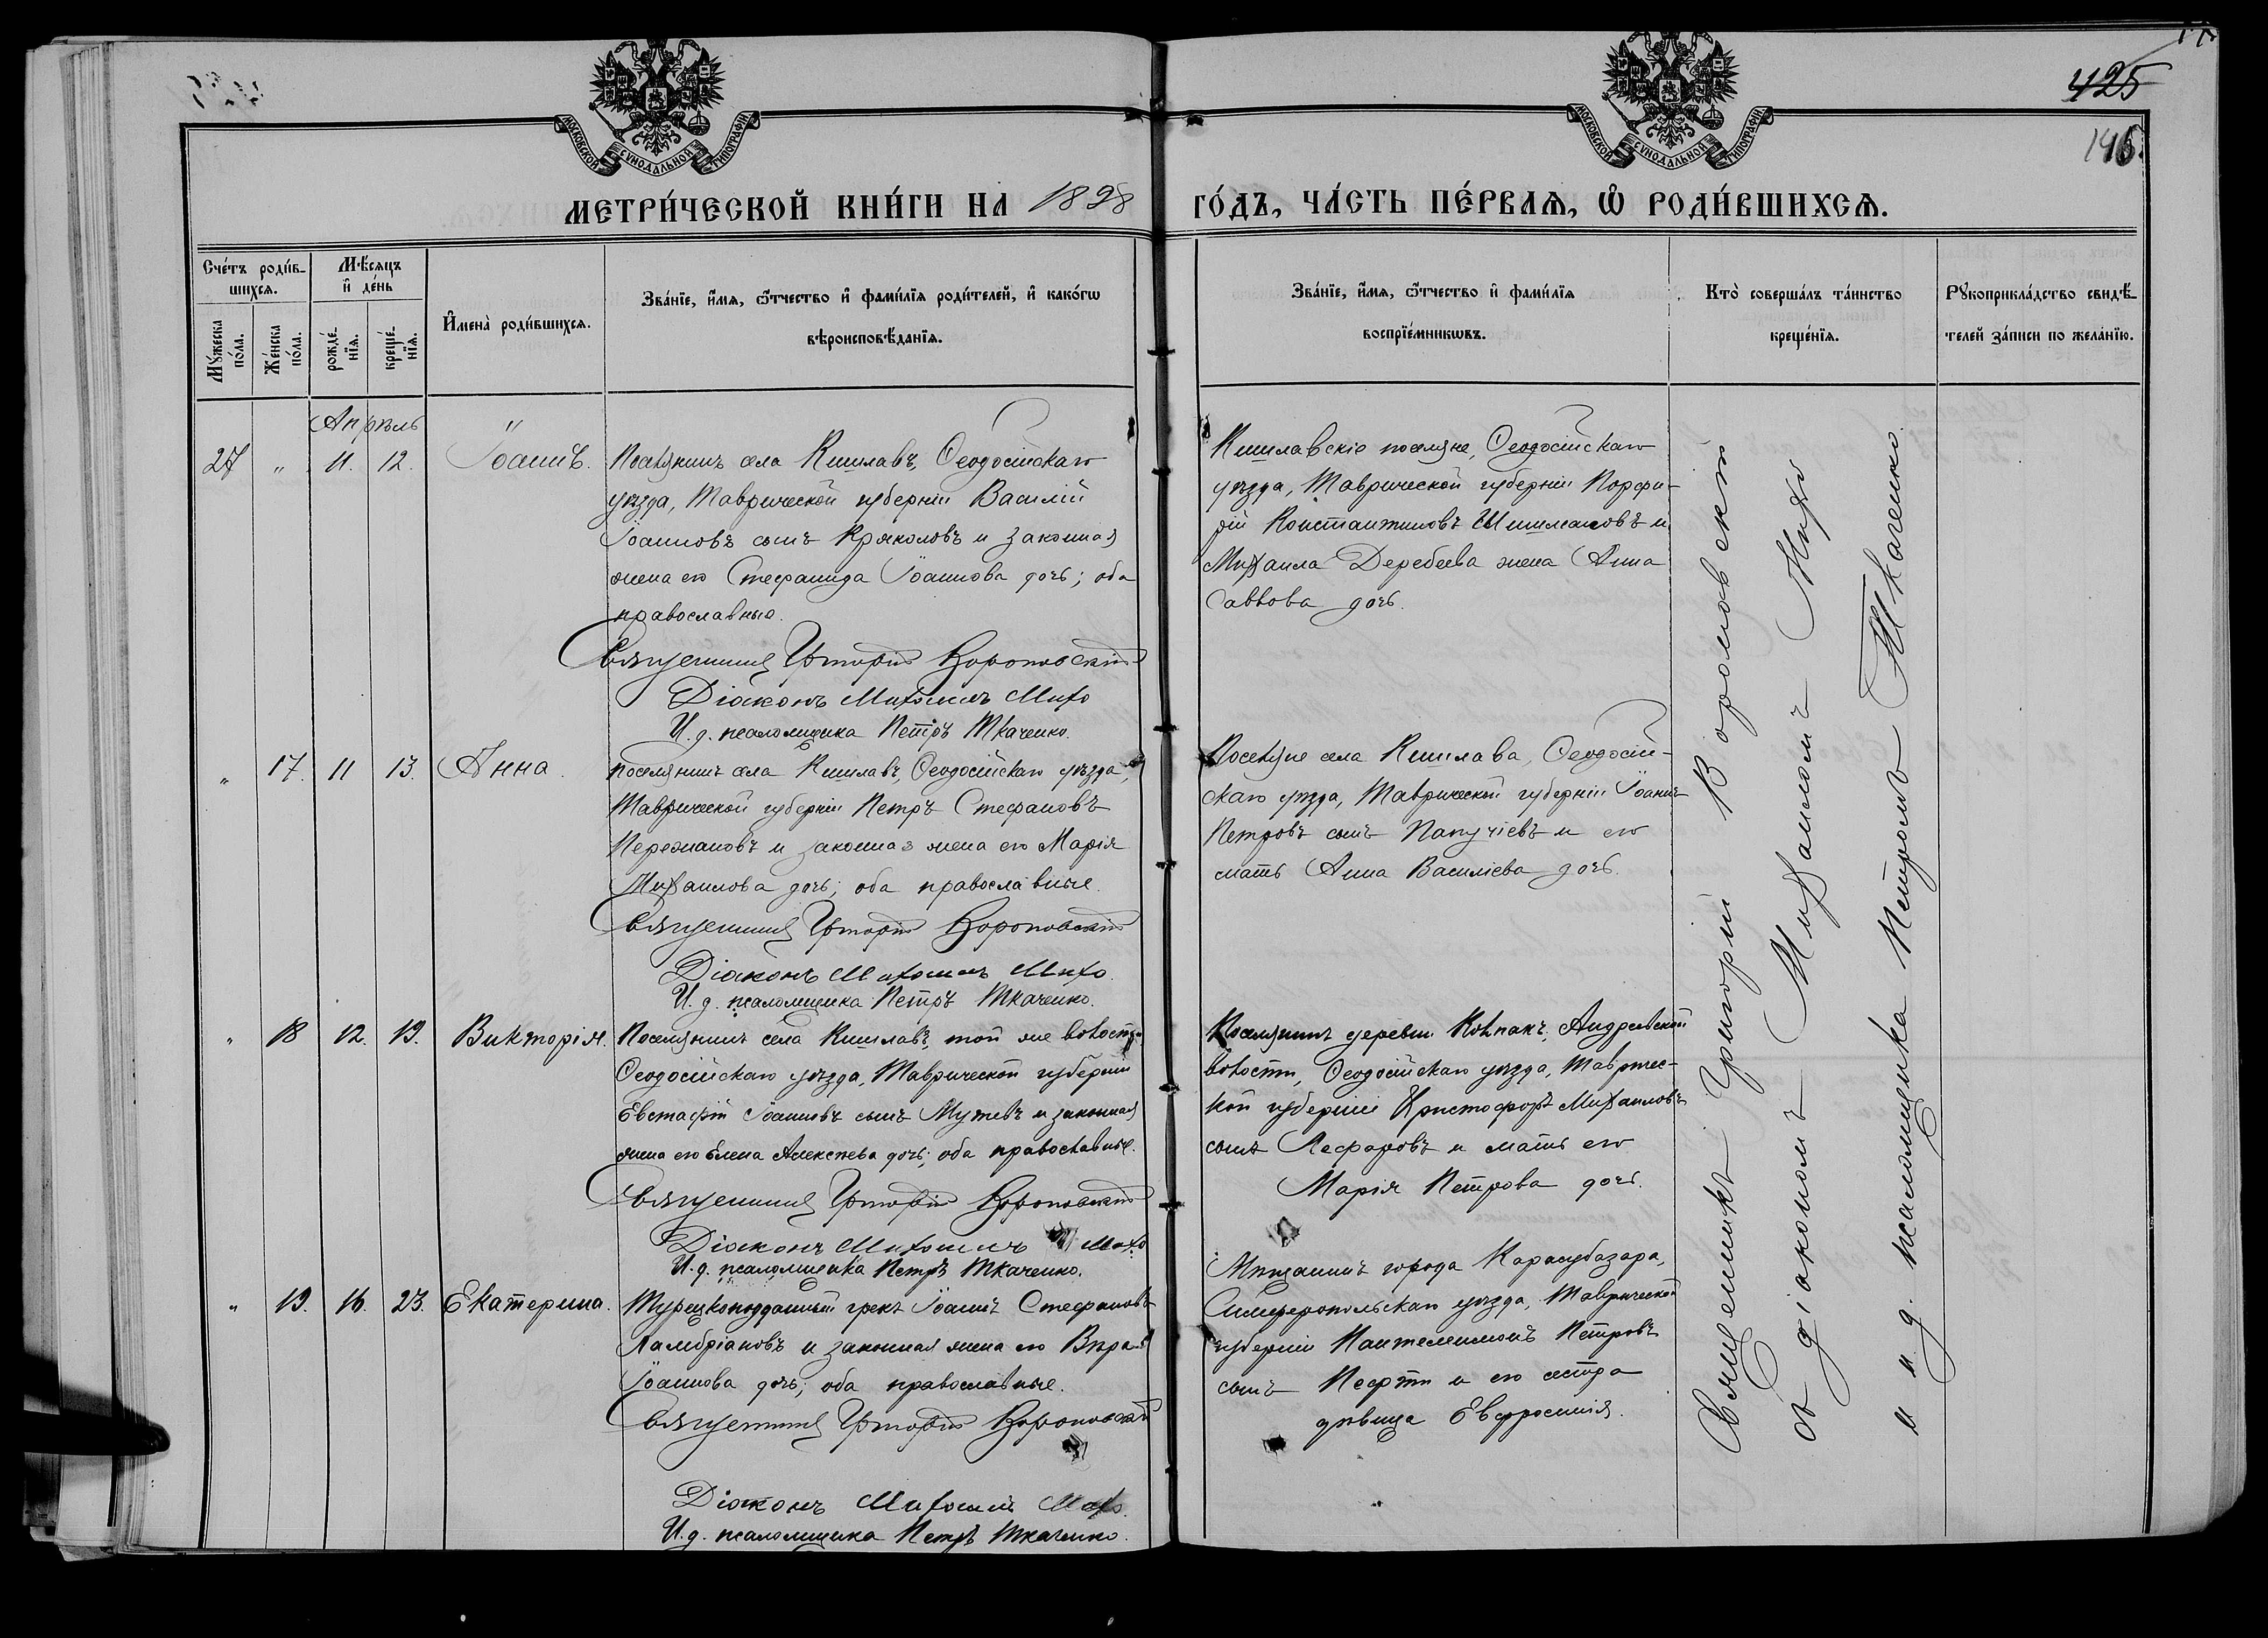 425
146.
МОСКОВСКОЙ СУНОДАЛЬНОЙ ТИПОГРАФІИ
МОСКОВСКОЙ СУНОДАЛЬНОЙ ТИПОГРАФІИ
МЕТРИ́ЧЕСКОЙ КНИ́ГИ НА 1898
ГО́ДЪ, ЧА́СТЬ ПЕ́РВАѦ, Ѡ҆ РОДИ́ВШИХСѦ.
Сче́тъ роди́в-
шихсѧ.
Мꙋ́жеска
по́ла.
Же́нска
по́ла.
Мѣ́сѧцъ
и҆ де́нь
рожде́-
нїѧ.
креще́-
нїѧ.
И҆мена̀ роди́вшихсѧ.
Зва́нїе, и҆́мѧ, ѻ҆́тчество и҆ фами́лїѧ роди́телей, и҆ како́гѡ
вѣроисповѣ́данїѧ.
Зва́нїе, и҆́мѧ, ѻ҆́тчество и҆ фами́лїѧ
воспрїе́мникѡвъ.
Кто̀ соверша́лъ та́инство
креще́нїѧ.
Рꙋкоприкла́дство свидѣ́-
телей за́писи по жела́нїю.
Апрѣль
27 " 11. 12. Іоаннъ.
Поселянинъ села Кишлавъ, Ѳеодосійскаго
уѣзда, Таврической губерніи Василій
Іоанновъ сынъ Кряколовъ и законная
жена его Стефанида Іоаннова дочь; оба
православные.
Священникъ Григорій Вороновскій
Діаконъ Михаилъ Михо
И. д. псаломщика Петръ Ткаченко.
Кишлавскіе поселяне, Ѳеодосійскаго
уѣзда, Таврической губерніи Порфи-
рій Константиновъ Шишмановъ и
Михаила Деребеева жена Анна
Саввова дочь.
" 17. 11 13. Анна.
Поселянинъ села Кишлавъ, Ѳеодосійскаго уѣзда,
Таврической губерніи Петръ Стефановъ
Пережановъ и законная жена его Марія
Михаилова дочь; оба православные.
Священникъ Григорій Вороновскій
Діаконъ Михаилъ Михо.
И. д. псаломщика Петръ Ткаченко.
Поселяне села Кишлава, Ѳеодосій-
скаго уѣзда, Таврической губерніи Іоаннъ
Петровъ сынъ Папучіевъ и его
мать Анна Василіева дочь.
" 18 12. 19. Викторія.
Поселянинъ села Кишлавъ, той же волости,
Ѳеодосійскаго уѣзда, Таврической губерніи
Евстафій Іоанновъ сынъ и законная
жена его Елена Алексѣева дочь; оба православные.
Священникъ Григорій Вороновскій
Діаконъ Михаилъ Михо
И. д. псаломщика Петръ Ткаченко.
Поселянинъ деревни Колпакъ, Андреевской
волости, Ѳеодосійскаго уѣзда, Тавричес-
кой губерніи Христофоръ Михаиловъ
сынъ Лефаровъ и мать его
Марія Петрова дочь.
" 19. 16. 23. Екатерина.
Турецкоподданный грекъ Іоаннъ Стефановъ
Ламбріановъ и законная жена его Вѣра
Іоаннова дочь; оба православные.
Священникъ Григорій Вороновскій
Діаконъ Михаилъ Михо.
И. д. псаломщика Петръ Ткаченко.
Мѣщанинъ города Карасубазара,
Симферопольскаго уѣзда, Таврической
губерніи Пантелеимонъ Петровъ
сынъ и его сестра
дѣвица Евфросинія.
Священникъ Григорій Вороновскій
съ діакономъ Михаиломъ Михо
и и. д. псаломщика Петромъ Ткаченко.